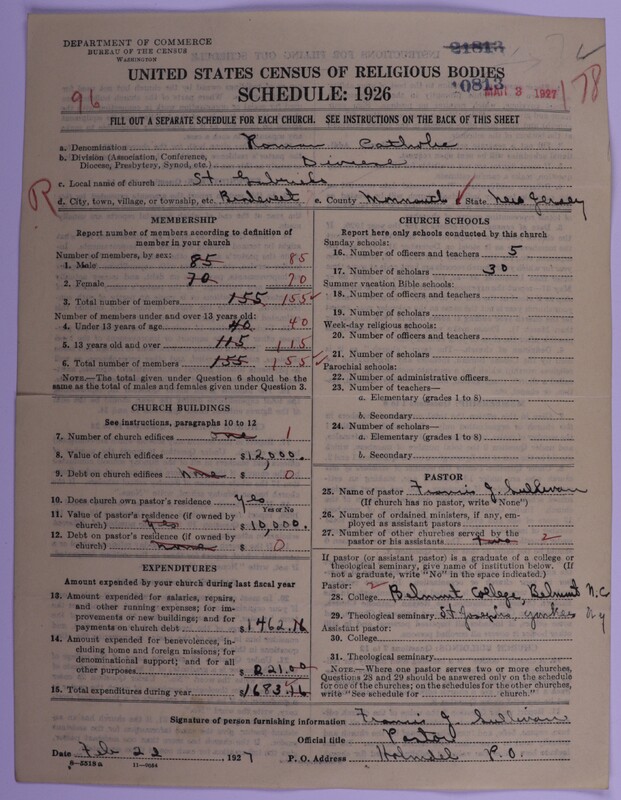 DEPARTMENT OF COMMERCE
BUREAU OF THE CENSUS
WASHINGTON
21813
10813
MAR 3 1927
178
96
UNITED STATES CENSUS OF RELIGIOUS BODIES
SCHEDULE: 1926
FILL OUT A SEPARATE SCHEDULE FOR EACH CHURCH. SEE INSTRUCTIONS ON THE BACK OF THIS SHEET
a. Denomination Roman Catholic
b. Division (Association, Conference,
Diocese, Presbytery, Synod, etc.) Diocese
c. Local name of church St. Gabriels
R
d. City, town, village, or township, etc. e. County Monmouth State New Jersey
MEMBERSHIP
Report number of members according to definition of
member in your church
Number of members, by sex:
1. Male 85 85
2. Female 70 70
3. Total number of members 155 155
Number of members under and over 13 years old:
4. Under 13 years of age 40 40
5. 13 years old and over 115 115
6. Total number of members 155 155
NOTE.—The total given under Question 6 should be the
same as the total of males and females given under Question 3.
CHURCH BUILDINGS
See instructions, paragraphs 10 to 12
7. Number of church edifices one 1
8. Value of church edifices $12,000.
9. Debt on church edifices none 0
10. Does church own pastor's residence yes
Yes or No
11. Value of pastor's residence (if owned by
church) yes $10,000.
12. Debt on pastor's residence (if owned by
church) none $ 0
EXPENDITURES
Amount expended by your church during last fiscal year
13. Amount expended for salaries, repairs,
and other running expenses; for im-
provements or new buildings; and for
payments on church debt $1462.76
14. Amount expended for benevolences, in-
cluding home and foreign missions; for
denominational support; and for all
other purposes $221.00
15. Total expenditures during year $1683.76
CHURCH SCHOOLS
Report here only schools conducted by this church
Sunday schools:
16. Number of officers and teachers 5
17. Number of scholars 30
Summer vacation Bible schools:
18. Number of officers and teachers
19. Number of scholars
Week-day religious schools:
20. Number of officers and teachers
21. Number of scholars
Parochial schools:
22. Number of administrative officers
23. Number of teachers—
a. Elementary (grades 1 to 8)
b. Secondary
24. Number of scholars—
a. Elementary (grades 1 to 8)
b. Secondary
PASTOR
25. Name of pastor Francis J. Sullivan
(If church has no pastor, write "None")
26. Number of ordained ministers, if any, em-
ployed as assistant pastors
27. Number of other churches served by the
pastor or his assistants two 2
If pastor (or assistant pastor) is a graduate of a college or
theological seminary, give name of institution below. (If
not a graduate, write "No" in the space indicated.)
Pastor: 2
28. College Belmont College, Belmont N.C.
29. Theological seminary St Josephs, Yonkers N y
Assistant pastor:
30. College
31. Theological seminary
NOTE.—Where one pastor serves two or more churches,
Questions 28 and 29 should be answered only on the schedule
for one of the churches; on the schedules for the other churches,
write "See schedule for church."
Signature of person furnishing information Francis J. Sullivan
Official title Pastor
Date Feb 22, 1927 P. O. Address Holmdel P.O.
8-5518a 11-9684